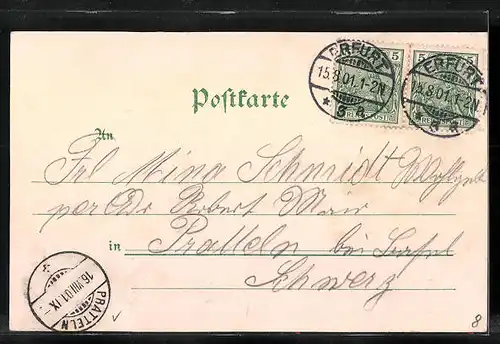 ERFURT
15.8.01.1-2N.
* 6 a
ERFURT
15.8.01.1-2N.
5
5
REICHSPOST
Postkarte
An
Frl Mina Schmidt
per Adr Robert Mair
in Pratteln bei Basel
Schweiz
PRATTELN
16.VIII.01.IX
8